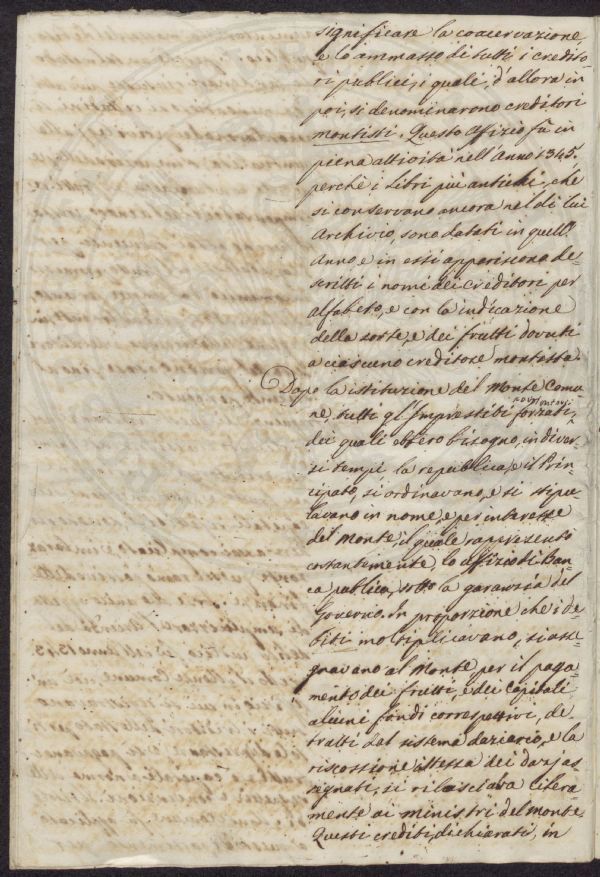 significare la coacervazione,
e lo ammasso di tutti i credito=
ri publici, i quali, d'allora in
poi, si denominarono creditori
montisti. Questo Affizio fù in
piena attività nell'Anno 1345.
perchè i Libri più antichi, che
si conservano ancora nel di lui
Archivio, sono datati in quell'
Anno, e in essi appariscono de=
scritti i nomi dei creditori per
alfabeto, e con la indicazione
della sorte, e dei frutti dovuti
a ciascuno creditore montista.
Dopo la istituzione del Monte Comu=
ne, tutti gl'Imprestiti forzati,
dei quali ebbero bisogno, in diver=
si tempi la republica, e il Prin=
cipato, si ordinavano, e si stipu=
lavano in nome, e per interesse
del Monte, il quale rappresentò
costantemente lo affizio di Ban=
ca publica, sotto la garanzia del
Governo. In proporzione che i de=
biti moltiplicavano, si asse=
gnavano al Monte per il paga=
mento dei frutti, e dei Capitali
alcuni fondi correspettivi, de=
tratti dal sistema daziario, e la
riscossione istessa dei dazj as=
segnati, si rilasciava libera=
mente ai ministri del monte.
Questi crediti, dichiarati, in